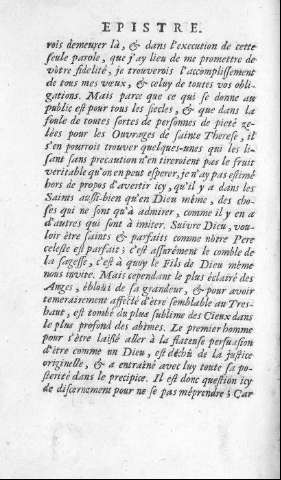 EPISTRE.
rois demeurer là, & dans l'execution de cette
seule parole, que j'ay lieu de me promettre de
vôtre fidelité, je trouverois l'accomplissement
de tous mes vœux, & celuy de toutes vos obli-
gations. Mais parce que ce qui se donne au
public est pour tous les siecles, & que dans la
foule de toutes sortes de personnes de pieté ze-
lées pour les Ouvrages de sainte Therese, il
s'en pourroit trouver quelques-unes qui les li-
sant sans precaution n'en tireroient pas le fruit
veritable qu'on en peut esperer, je n'ay pas estimé
hors de propos d'avertir icy, qu'il y a dans les
Saints aussi-bien qu'en Dieu même, des cho-
ses qui ne sont qu'à admirer, comme il y en a
d'autres qui sont à imiter. Suivre Dieu, vou-
loir être saints & parfaits comme nôtre Pere
celeste est parfait; c'est assurément le comble de
la sagesse, c'est à quoy le Fils de Dieu même
nous invite. Mais cependant le plus éclairé des
Anges, ébloüi de sa grandeur, & pour avoir
temerairement affecté d'être semblable au Tres-
haut, est tombé du plus sublime des Cieux dans
le plus profond des abîmes. Le premier homme
pour s'être laissé aller à la flateuse persuasion
d'être comme un Dieu, est déchû de la justice
originelle, & a entraîné avec luy toute sa po-
sterité dans le precipice. Il est donc question icy
de discernement pour ne se pas méprendre; Car